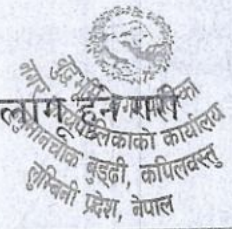 बुद्धभूमि नगरपालिका
नगर कार्यपालिकाको कार्यालय
लागू हुने गरी
बुड्ढी, कपिलवस्तु
लुम्बिनी प्रदेश, नेपाल